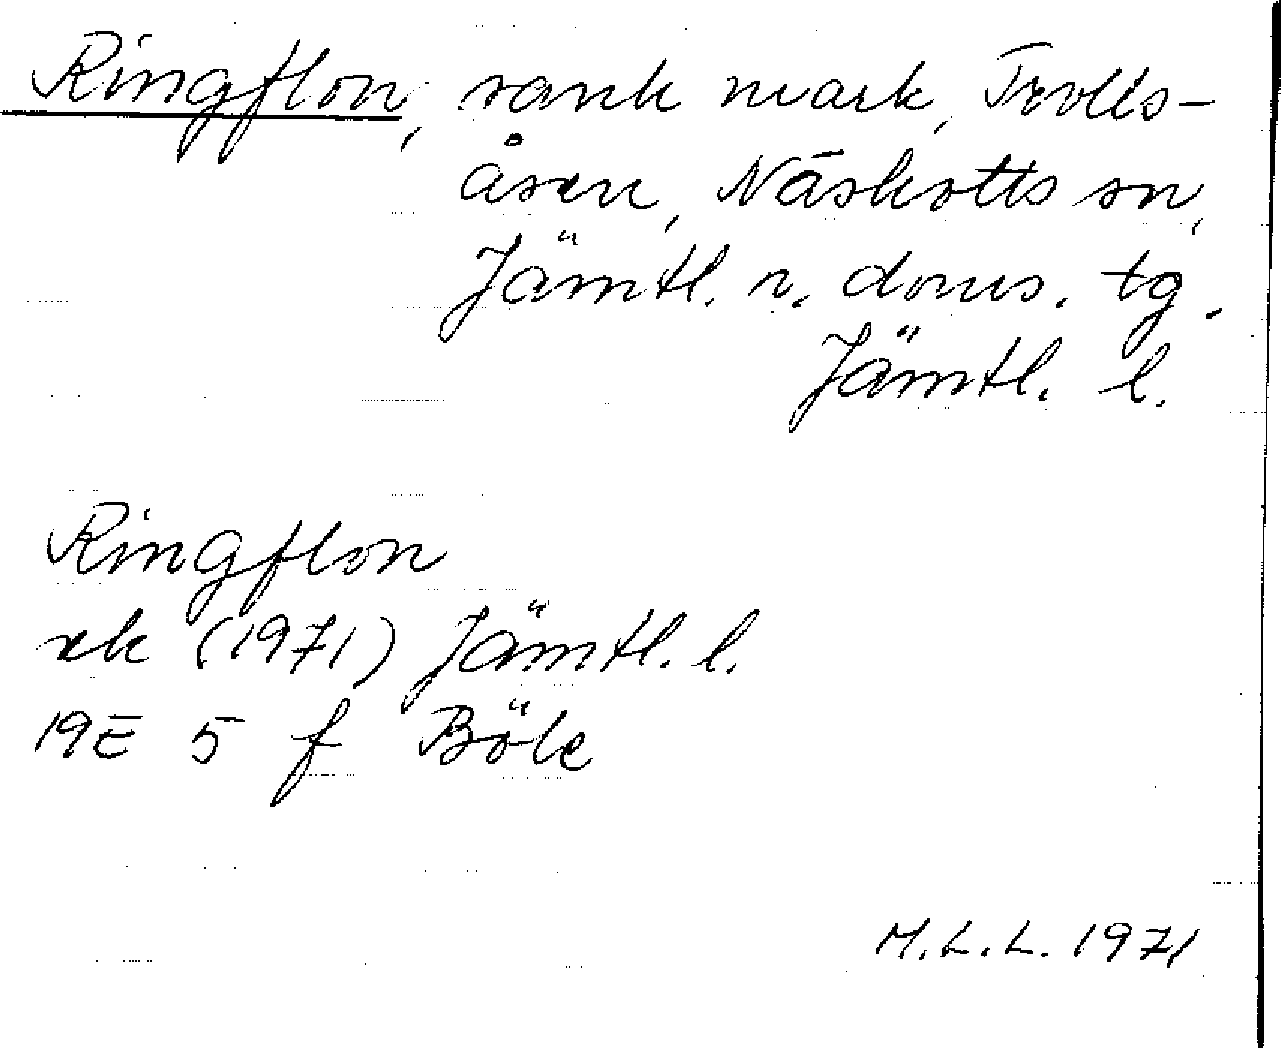 Ringflon, sank mark, Trolls-
åsen, Näskotts sn,
Jämtl. v. doms. tg.
Jämtl. l.
Ringflon
ek (1971) Jämtl. l.
19E 5 f Böle
M.L.L. 1971